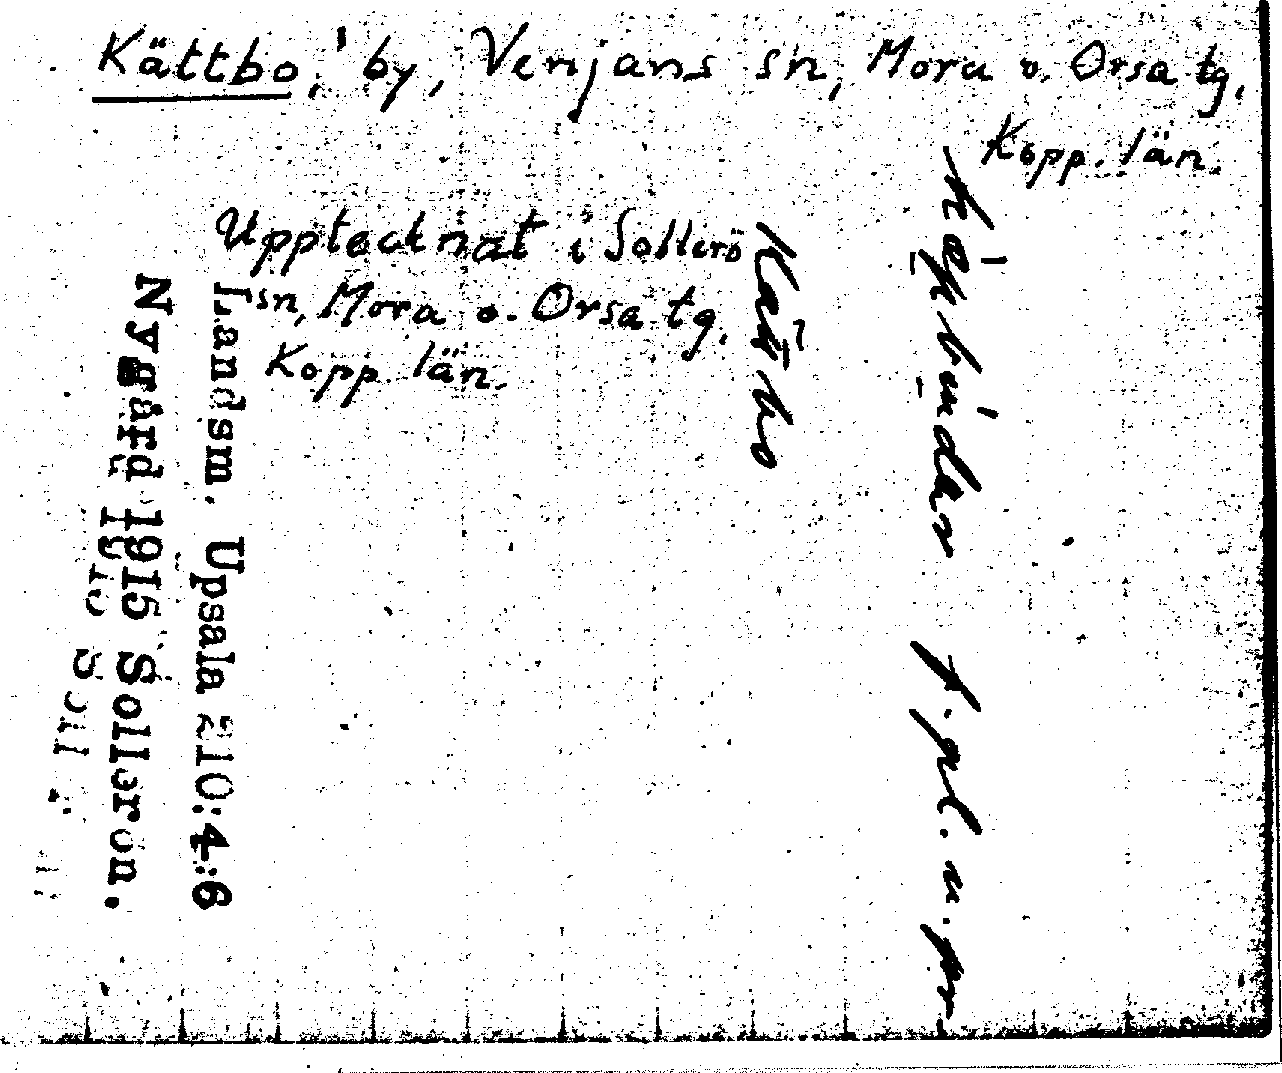 Kättbo, by, Venjans sn, Mora o. Orsa tg,
Kopp. län.
Upptecknat i Sollerö
sn, Mora o. Orsa tg.
Kopp. län.
f. pl. n. pr
Landsm. Upsala 210:4:6
Nygård 1915 Sollerön.